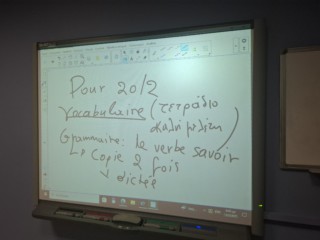 Pour 20/2
Vocabulaire (τετράδιο
καλή μελέτη)
Grammaire: le verbe savoir
↳ Copie 2 fois
↘ dictée